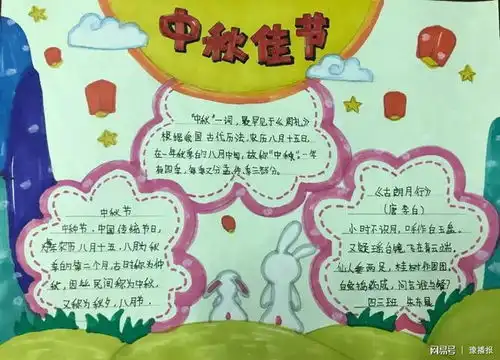 中秋佳节
"中秋"一词，最早见于《周礼》
根据我国古代历法，农历八月十五日，
在一年秋季的八月中旬，故称"中秋"。一年
有四季，每季又分孟、仲、季三部分。
中秋节
中秋节，中国传统节日，
为农历八月十五，八月为秋
季的第二个月，古时称为仲
秋，因此民间称为中秋，
又称为秋夕，八月节，
《古朗月行》
（唐 李白）
小时不识月，呼作白玉盘。
又疑瑶台镜，飞在青云端。
仙人垂两足，桂树作团团。
白兔捣药成，问言谁与餐？
四三班 朱
网易号 | 豫播报